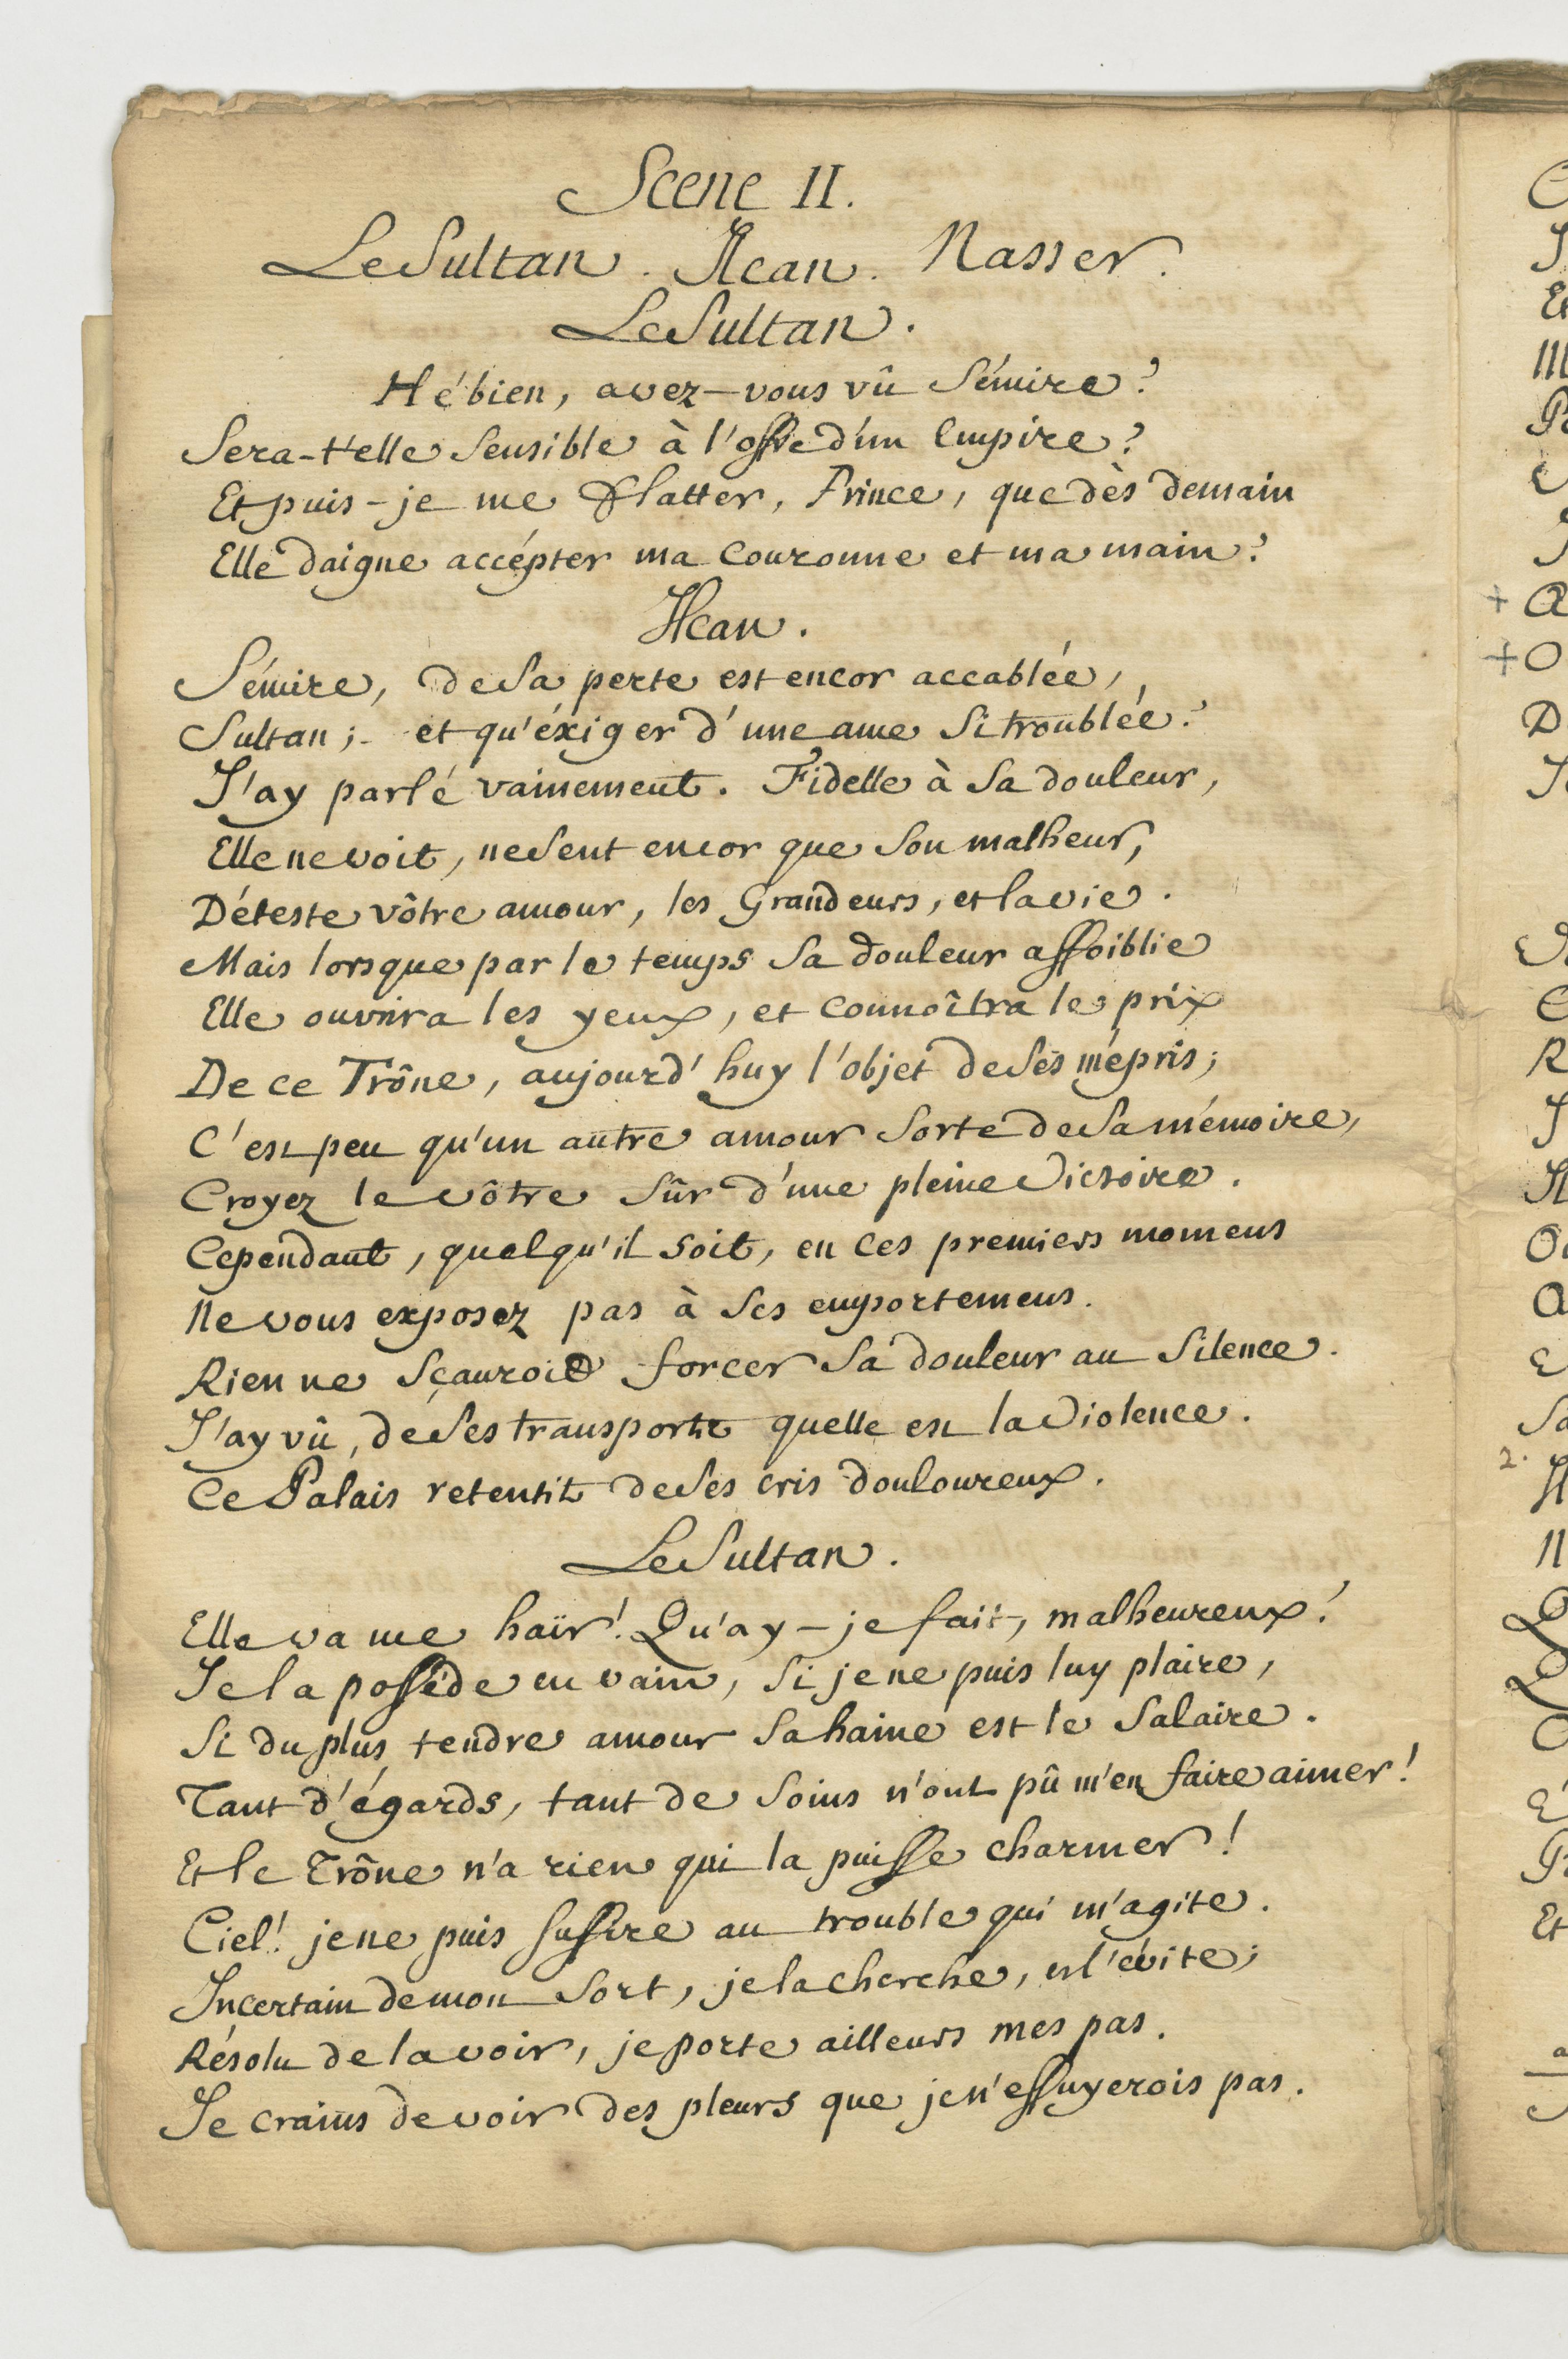 Scene II.
Le Sultan. Acan. Nasser.
Le Sultan.
Hé bien, avez-vous vû Sémire?
Sera-t'elle Sensible à l'offre d'un Empire?
Et puis-je me flatter, Prince, que dès demain
Elle daigne accépter ma Couronne et ma main?
Acan.
Sémire, de Sa perte est encor accablée,
Sultan; et qu'éxiger d'une ame Si troublée?
J'ay parlé vainement. Fidelle à Sa douleur,
Elle ne voit, ne Sent encor que Son malheur,
Déteste vôtre amour, les Grandeurs, et la vie.
Mais lorsque par le temps Sa douleur affoiblie
Elle ouvrira les yeux, et Connoîtra le prix
De ce Trône, aujourd'huy l'objet de Ses mépris;
C'est peu qu'un autre amour Sorte de Sa mémoire,
Croyez le vôtre Sûr d'une pleine Victoire.
Cependant, quelqu'il soit, en Ces premiers momens
Ne vous exposez pas à Ses emportemens.
Rien ne Sçauroit forcer Sa douleur au Silence.
J'ay vû, de Ses transports quelle est la Violence.
Ce Palais retentit de Ses cris douloureux.
Le Sultan.
Elle va me haïr! Qu'ay-je fait, malheureux!
Je la possède en vain, Si je ne puis luy plaire,
Si du plus tendre amour Sa haine est le Salaire.
Tant d'égards, tant de Soins n'ont pû m'en faire aimer!
Et le Trône n'a rien qui la puisse charmer!
Ciel! je ne puis Suffire au trouble qui m'agite.
Incertain de mon Sort, je la cherche, et l'évite;
Résolu de la voir, je porte ailleurs mes pas.
Je crains de voir des pleurs que je n'essuyerois pas.